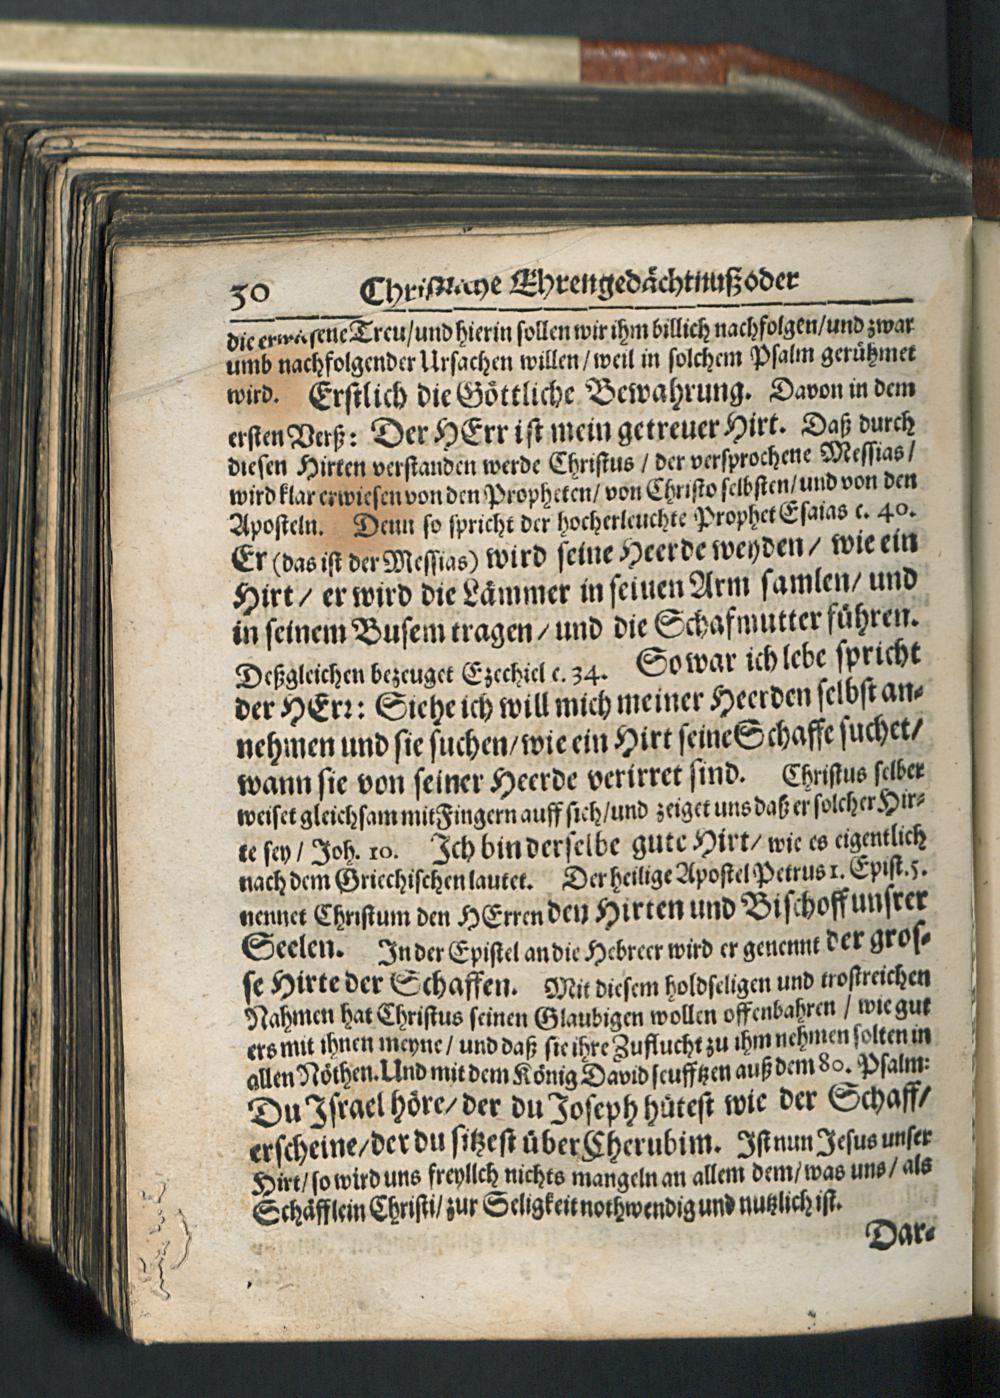 30 Christliche Ehrengedächtnuß oder
die erwiesene Treu/ und hierin sollen wir ihm billich nachfolgen/ und zwar
umb nachfolgender Ursachen willen/ weil in solchem Psalm gerühmet
wird. Erstlich die Göttliche Bewahrung. Davon in dem
ersten Verß: Der HErr ist mein getreuer Hirt. Daß durch
diesen Hirten verstanden werde Christus / der versprochene Messias/
wird klar erwiesen von den Propheten/ von Christo selbsten/ und von den
Aposteln. Denn so spricht der hocherleuchte Prophet Esaias c. 40.
Er (das ist der Messias) wird seine Heerde weyden/ wie ein
Hirt/ er wird die Lämmer in seinen Arm samlen/ und
in seinem Busem tragen/ und die Schafmutter führen.
Deßgleichen bezeuget Ezechiel c. 34. So war ich lebe spricht
der HErr: Siehe ich will mich meiner Heerden selbst an-
nehmen und sie suchen/ wie ein Hirt seine Schaffe suchet/
wann sie von seiner Heerde verirret sind. Christus selber
weiset gleichsam mit Fingern auff sich/ und zeiget uns daß er solcher Hir-
te sey/ Joh. 10. Ich bin derselbe gute Hirt/ wie es eigentlich
nach dem Griechischen lautet. Der heilige Apostel Petrus 1. Epist. 5.
nennet Christum den HErren den Hirten und Bischoff unsrer
Seelen. In der Epistel an die Hebreer wird er genennt der gros-
se Hirte der Schaffen. Mit diesem holdseligen und trostreichen
Nahmen hat Christus seinen Glaubigen wollen offenbahren / wie gut
ers mit ihnen meyne/ und daß sie ihre Zuflucht zu ihm nehmen solten in
allen Nöthen. Und mit dem König David seufftzen auß dem 80. Psalm:
Du Israel höre/ der du Joseph hütest wie der Schaff/
erscheine/ der du sitzest über Cherubim. Ist nun Jesus unser
Hirt/ so wird uns freylich nichts mangeln an allem dem/ was uns/ als
Schäfflein Christi/ zur Seligkeit nothwendig und nutzlich ist.
Dar-